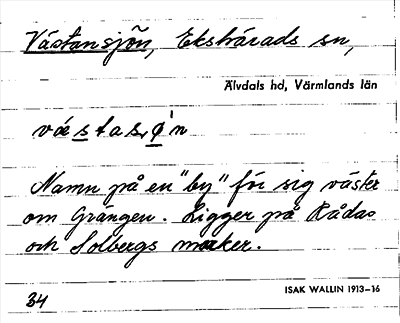 Västansjön, Ekshärads sn,
Älvdals hd, Värmlands län
västas,ø'n
Namn på en "by" för sig väster
om Grängen. Ligger på Rådas
och Solbergs marker.
34
ISAK WALLIN 1913–16